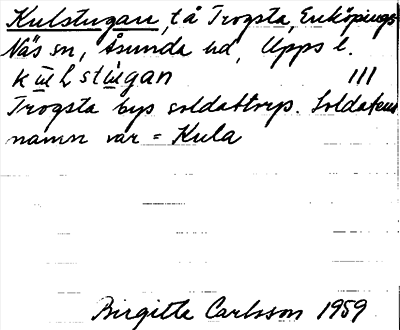 Kulstugan, t å Trogsta, Enköpings-
Näs sn, Åsunda hd, Upps l.
kuL stugan III
Trogsta bys soldattorp. Soldatens
namn var = Kula
Birgitta Carlsson 1959